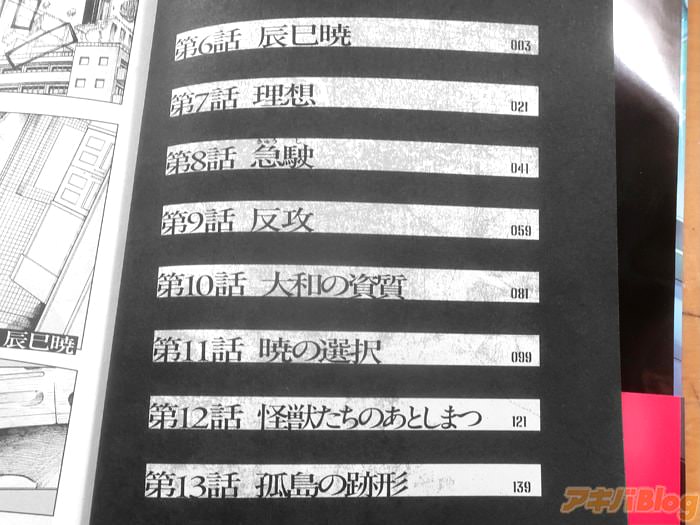 第6話 辰巳暁 003
第7話 理想 021
第8話 急駛 041
第9話 反攻 059
第10話 大和の資質 081
第11話 暁の選択 099
第12話 怪獣たちのあとしまつ 121
第13話 孤島の跡形 139
辰巳暁
アキバBlog